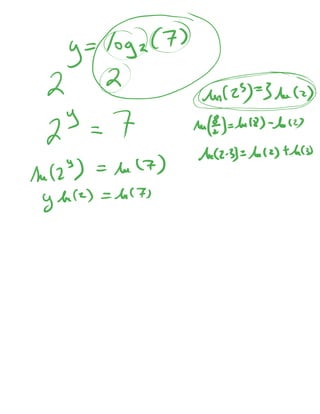 y = log₂(7)
2 2
2^y = 7
ln(2^y) = ln(7)
y ln(2) = ln(7)
ln(2³) = 3 ln(2)
ln(8/2) = ln(8) - ln(2)
ln(2·3) = ln(2) + ln(3)